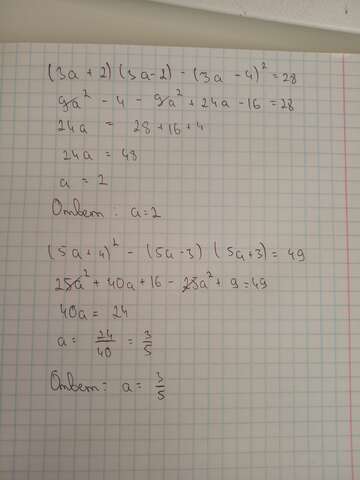 (3a + 2) (3a - 2) - (3a - 4)² = 28
9a² - 4 - 9a² + 24a - 16 = 28
24a = 28 + 16 + 4
24a = 48
a = 2
Ответ: a = 2
(5a + 4)² - (5a - 3) (5a + 3) = 49
25a² + 40a + 16 - 25a² + 9 = 49
40a = 24
a = 24/40 = 3/5
Ответ: a = 3/5